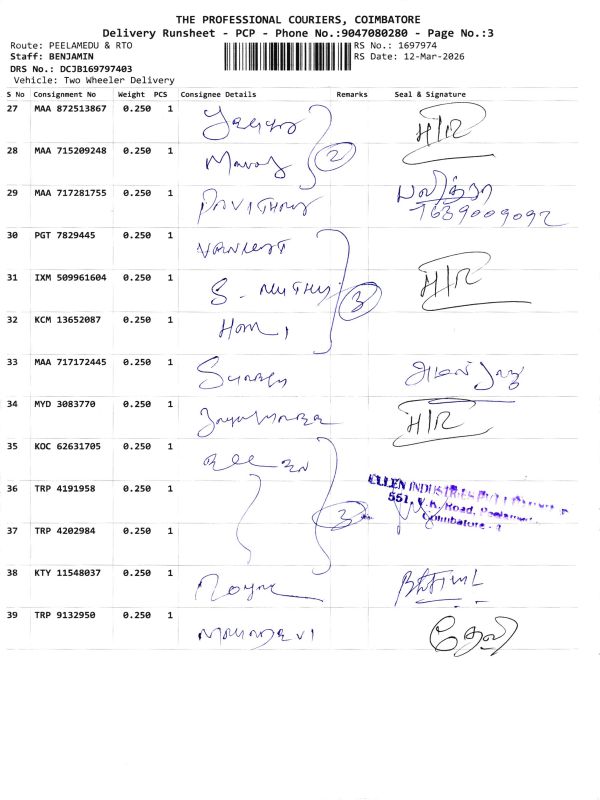 THE PROFESSIONAL COURIERS, COIMBATORE
Delivery Runsheet - PCP - Phone No.:9047080280 - Page No.:3
Route: PEELAMEDU & RTO RS No.: 1697974
Staff: BENJAMIN RS Date: 12-Mar-2026
DRS No.: DCJB169797403
Vehicle: Two Wheeler Delivery
S No Consignment No Weight PCS Consignee Details Remarks Seal & Signature
27 MAA 872513867 0.250 1 H/R
28 MAA 715209248 0.250 1 Manoj 2
29 MAA 717281755 0.250 1 PAVITHRA பவித்ரா
7639009092
30 PGT 7829445 0.250 1
31 IXM 509961604 0.250 1 S. MUTHU 3 H/R
32 KCM 13652087 0.250 1
33 MAA 717172445 0.250 1
34 MYD 3083770 0.250 1 H/R
35 KOC 62631705 0.250 1
36 TRP 4191958 0.250 1 3 ELLEN INDUSTRIES PVT
551, V.K. Road, Peelamedu
Coimbatore - 4
37 TRP 4202984 0.250 1
38 KTY 11548037 0.250 1
39 TRP 9132950 0.250 1 தேவி